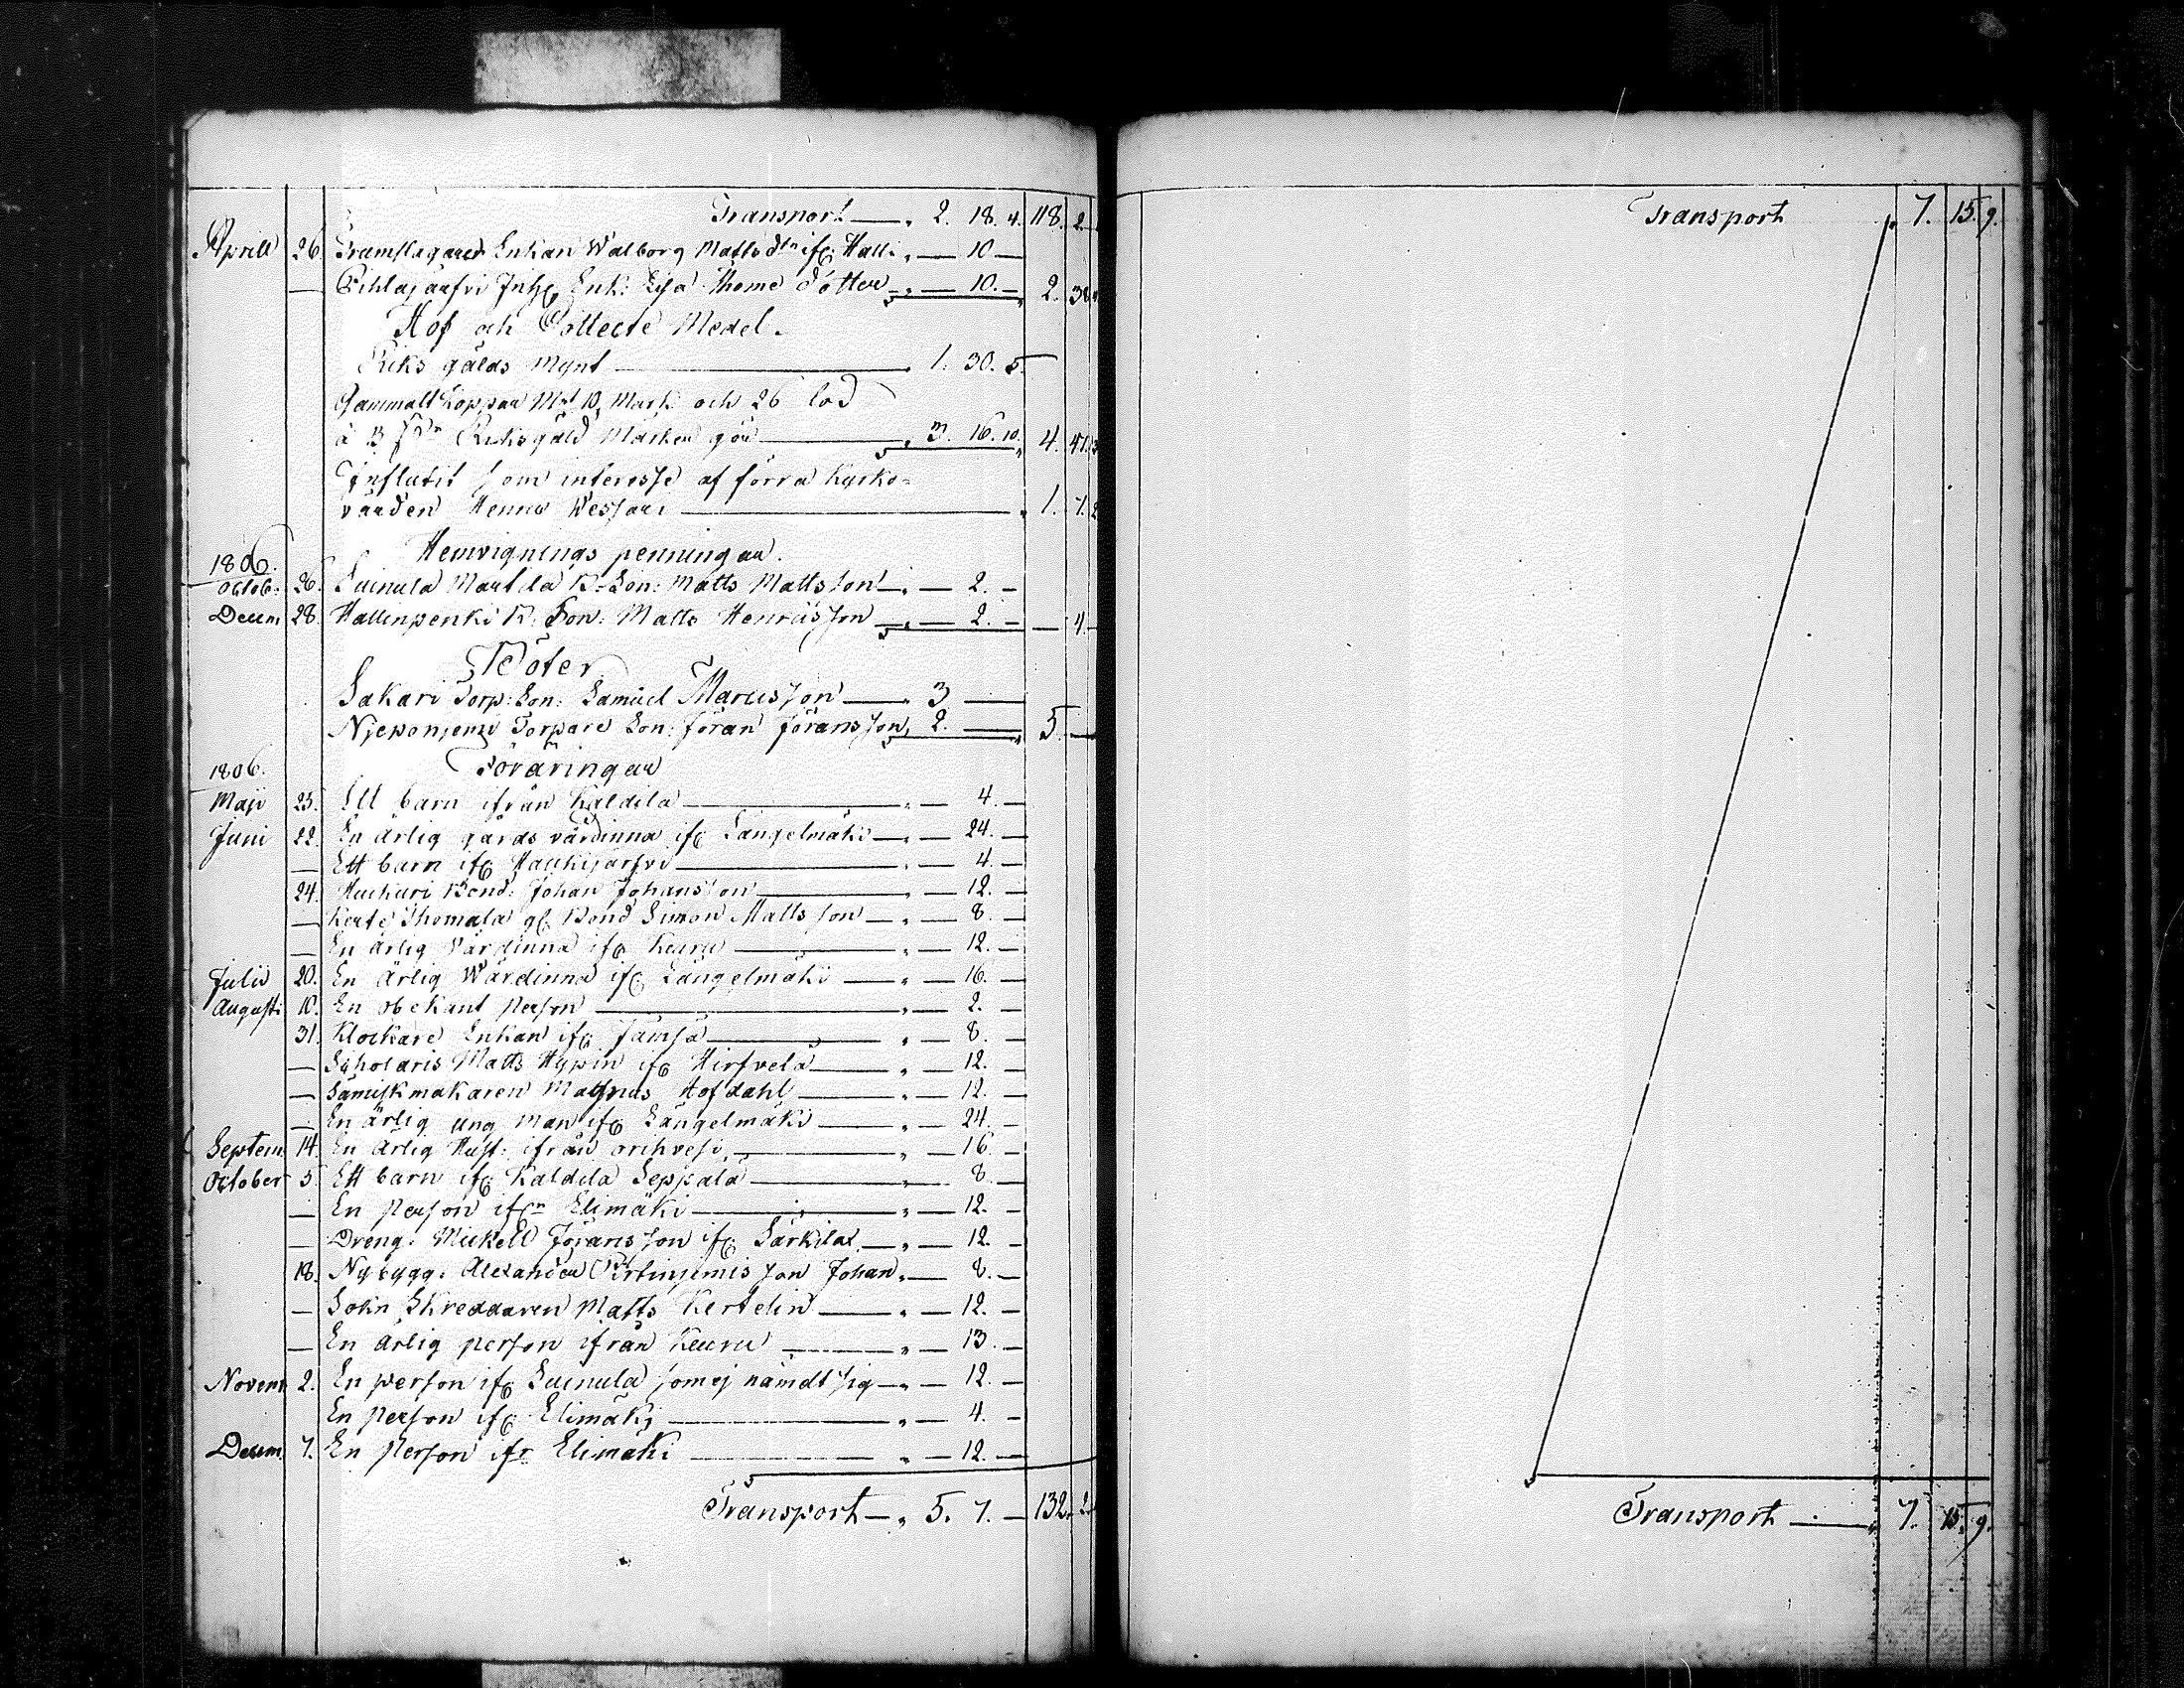 Transport — " 2. 18. 4. 118. 2.
Aprill 26. Trumslagare Enkan Walborg Matts dtr ifr: Halli " — 10 —
— Pihlajärfvi Inh: Enk: Lisa Thome dotter " — 10. — 2. 38.
Hof och Collecte Medel.
Riks gälds Mynt — " 1. 30. 5.
Gammalt Koppar Mt 10 Mark och 26 lod
à 13 Riksgäld Marken gör — " 3. 16. 10. 4. 47. 3
Influtit som interesse af förra kyrko-
värden Henric Wessari — " 1. 7. 2
1806. Hemvignings penningar.
Octob: 26. Suinula Mattila B. Son: Matts Mattsson — " — 2. —
Decem 28. Hallinpenki B. Son: Matts Henricsson — " — 2. — — 4. —
Böter
Sakari Torp: Son: Samuel Marcusson — " 3 —
Njeponjemi Torpare Son: Jöran Jöransson " 2. — " 5. —
1806. Föräringar
Maji 25. Ett barn ifrån Kaldila — " — 4. —
Juni 22. En ärlig gårds värdinna ifr: Längelmäki — " — 24. —
— Ett barn ifr: Haukijärfvi — " — 4. —
24. Huhuri Bond: Johan Johansson — " — 12. —
— Kerte Thomala gl: Bond Simon Mattsson — " — 8. —
— En ärlig Värdinna ifr: Keuru — " — 12. —
Julii 20. En ärlig Wärdinna ifr: Längelmäki — " — 16. —
Augusti 10. En obekant person — " — 2. —
31. Klockare Enkan ifr: Jämsä — " — 8. —
— Scholaris Matts Hypin ifr: Hirsvelä — " — 12. —
— Sämiskmakaren Magnus Hofdahl — " — 12. —
— En ärlig ung Man ifr: Längelmäki — " — 24. —
Septem 14. En ärlig Hust: ifrån orihvesi — " — 16. —
October 5. Ett barn ifr: Kaldila Seppälä — " — 8. —
— En person ifrn Elimäki — " — 12. —
— Dreng: Mickell Jöransson ifr: Särkilax — " — 12. —
18. Nybygg: Alexander Pertinjemis son Johan " — 8. —
— Sokn Skreddaren Matts Kertelin — " — 12. —
— En ärlig person ifrån Keuru — " — 13. —
Novem 2. En person ifr: Suinula som ej nämdt sig — " — 12. —
En person ifr: Elimäki — " — 4. —
Decem. 7. En person ifr Elimäki — " — 12. —
Transport — " 5. 7. — 132. 2.
Transport " 7. 15. 9.
Transport — " 7. 15. 9.